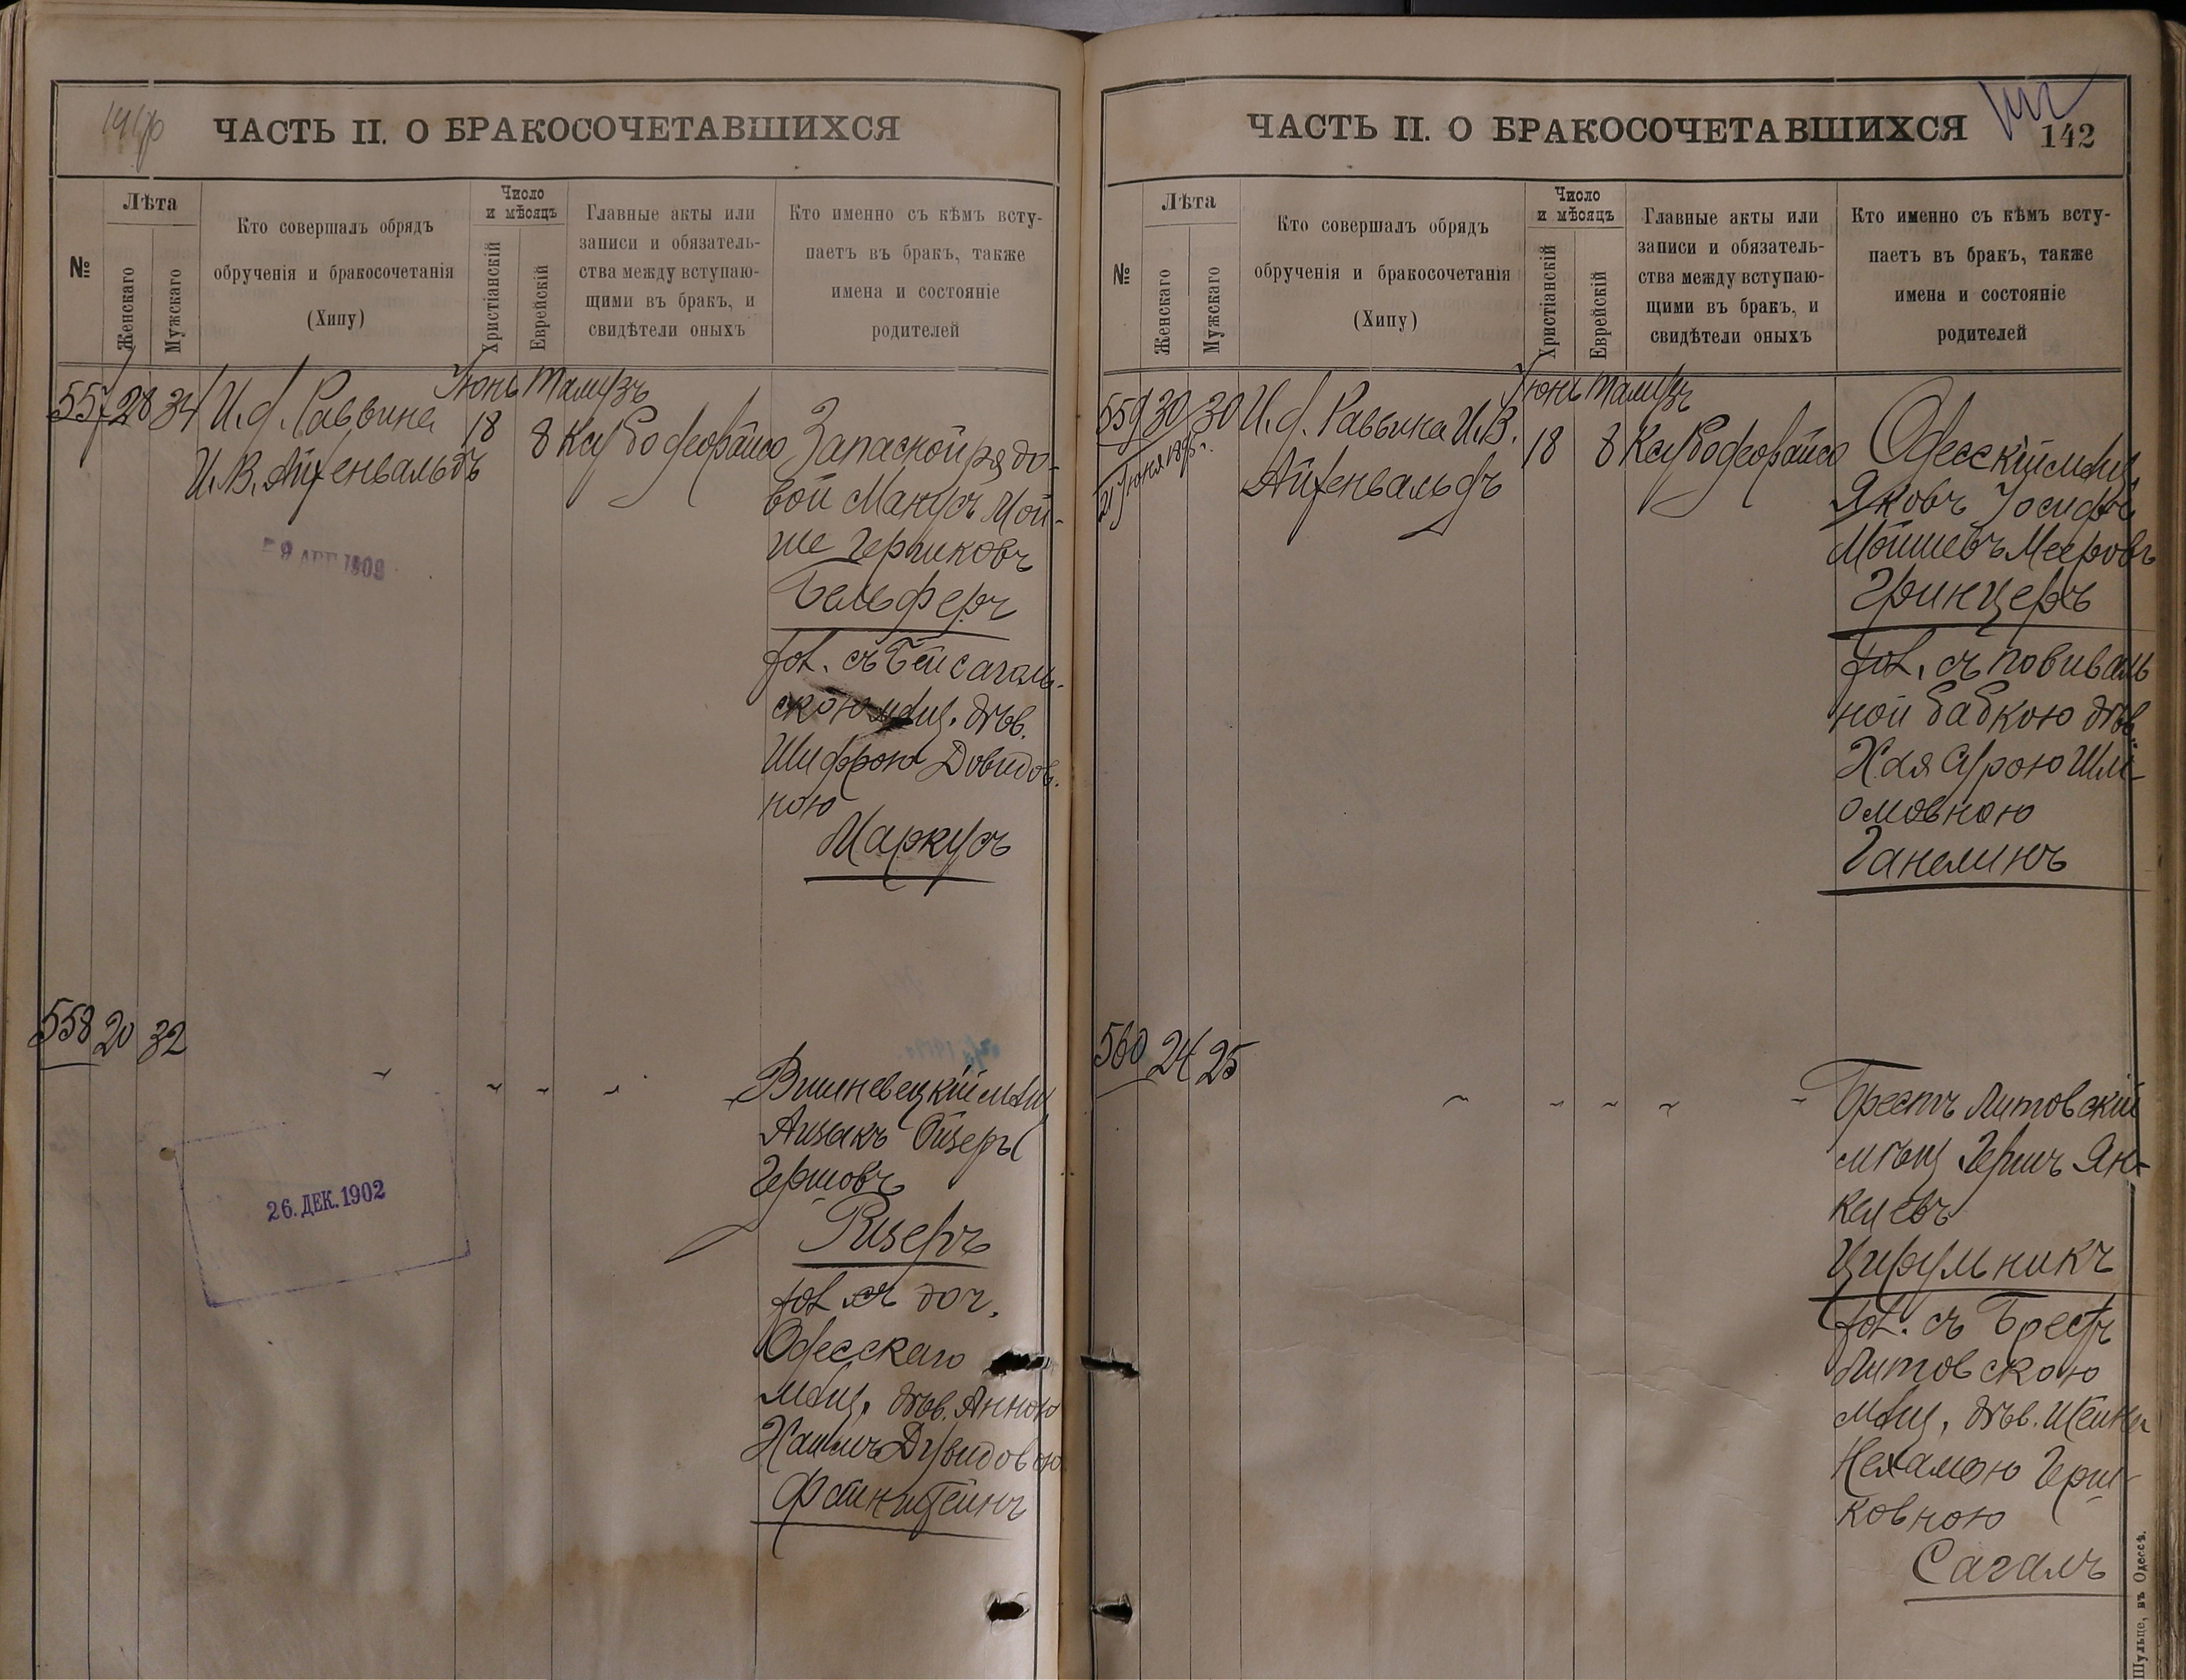 ЧАСТЬ II. О БРАКОСОЧЕТАВШИХСЯ
№
Лѣта
Женскаго
Мужскаго
Кто совершалъ обрядъ
обрученія и бракосочетанія
(Хипу)
Число
и мѣсяцъ
Христіанскій
Еврейскій
Главные акты или
записи и обязатель-
ства между вступаю-
щими въ бракъ, и
свидѣтели оныхъ
Кто именно съ кѣмъ всту-
паетъ въ бракъ, также
имена и состояніе
родителей
Іюнь Тамузъ
557 28 34 И. д. Раввина 18 8
И. В. Айзенвальдъ
Запасной рядо-
вой Манусъ Мой-
ше Гершковъ
Бельферъ
хол. съ Бейсаголь-
скою мѣщ. дѣв.
Шифрою Довидов.
ною
Маркусъ
558 20 32
Вишневецкій мѣщ
Айзакъ Ойзеръ
Гершовъ
Ризеръ
хол. съ доч.
Одесскаго
мѣщ. дѣв. Анною
Дувидовою
Файнштейнъ
26. ДЕК. 1902
ЧАСТЬ II. О БРАКОСОЧЕТАВШИХСЯ
142
№
Лѣта
Женскаго
Мужскаго
Кто совершалъ обрядъ
обрученія и бракосочетанія
(Хипу)
Число
и мѣсяцъ
Христіанскій
Еврейскій
Главные акты или
записи и обязатель-
ства между вступаю-
щими въ бракъ, и
свидѣтели оныхъ
Кто именно съ кѣмъ всту-
паетъ въ бракъ, также
имена и состояніе
родителей
Іюнь Тамузъ
559 30 30 И. д. Раввина И. В. 18 8
Айзенвальдъ
Одесскій мѣщ
Яковъ Іосифъ
Мошневъ Мееровъ
Гринцеръ
хол. съ повиваль
ной бабкою дѣв.
Хая Сурою Шлі-
омовною
Ганелинъ
560 24 25
Брестъ Литовскій
мѣщ Гершъ Ян-
келевъ
Цирульникъ
хол. съ Брестъ
Литовскою
мѣщ. дѣв. Шейна
Нехамою Герш-
ковною
Сагалъ
Шульце, въ Одессѣ.